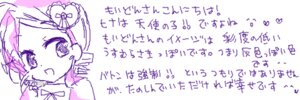 もいどんさんこんにちは!
ヒナは天使の子!! ですよね
もいどんさんのイメージは 彩度の低い
うすむらさきっぽいです。つまり灰色っぽい色
です
ベトンは強制!! というつもりではありませ
が、たのしんでいただければ幸せです